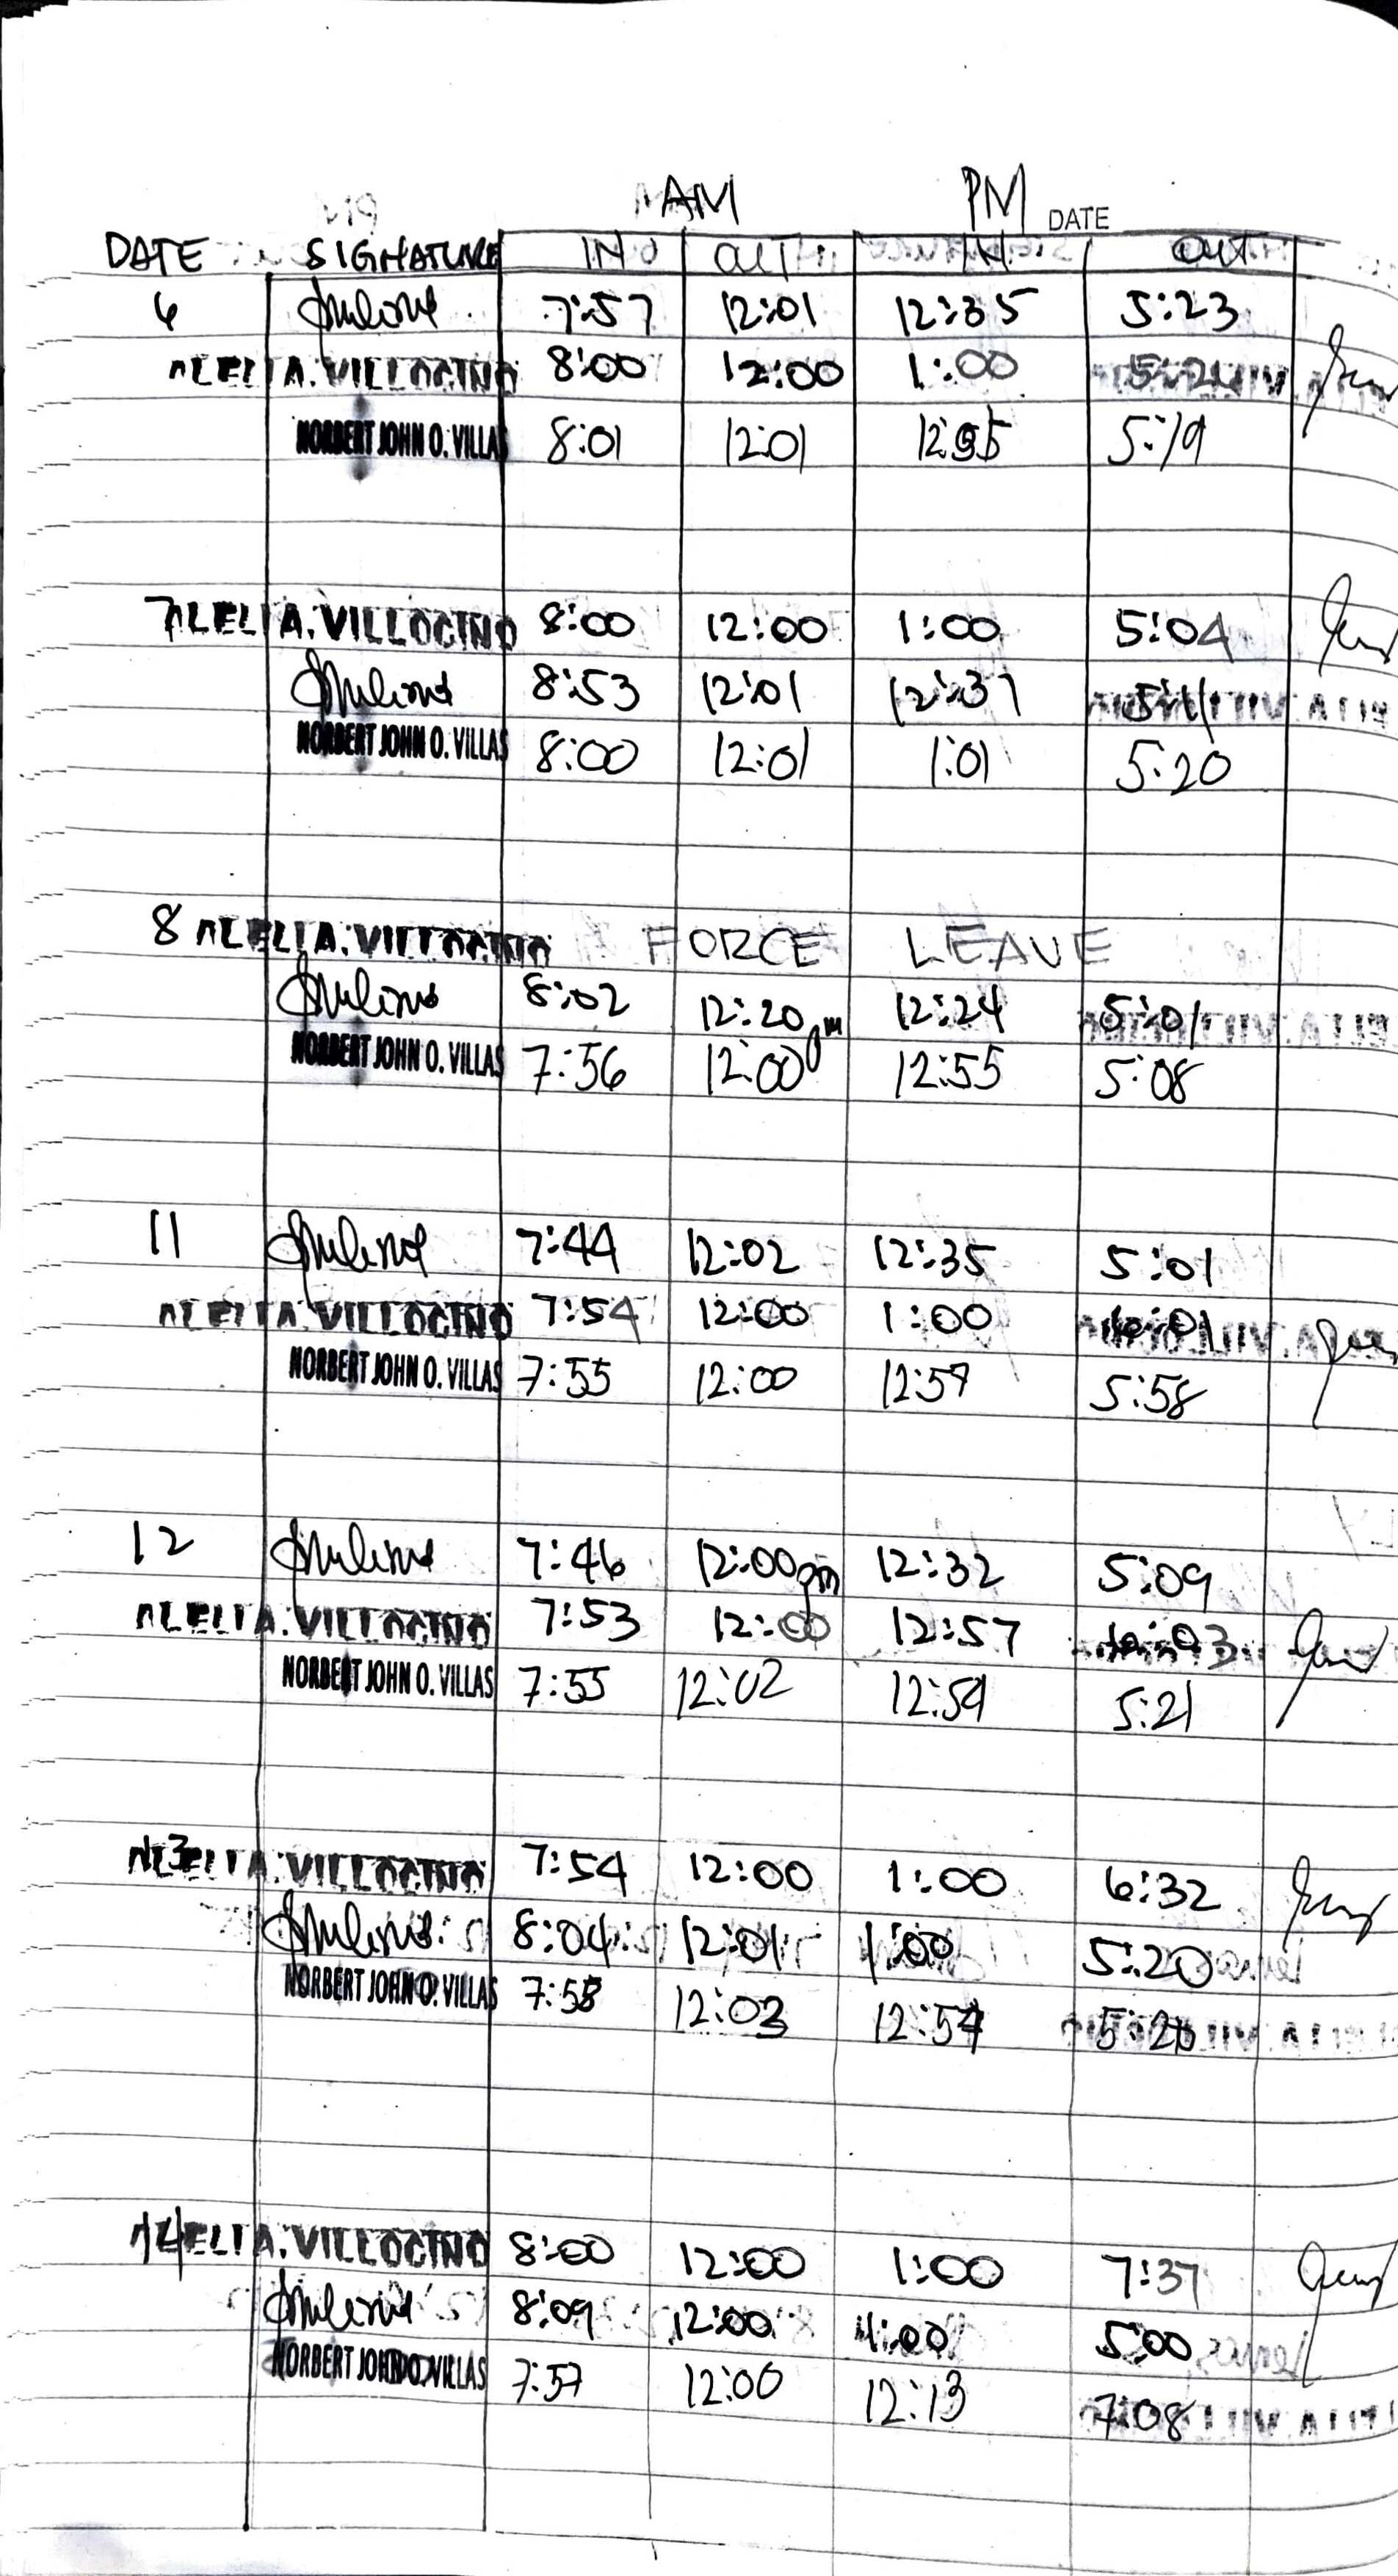 AM PM
DATE
DATE SIGNATURE IN OUT IN OUT
6 7:57 12:01 12:35 5:23
ALELI A. VILLOCINO 8:00 12:00 1:00 5:21
NORBERT JOHN O. VILLAS 8:01 12:01 5:19
7 ALELI A. VILLOCINO 8:00 12:00 1:00 5:04
8:53 12:01 12:37 5:11
NORBERT JOHN O. VILLAS 8:00 12:01 1:01 5:20
8 ALELI A. VILLOCINO FORCE LEAVE
8:02 12:20 pm 12:24 5:01
NORBERT JOHN O. VILLAS 7:56 12:00 12:55 5:08
11 7:44 12:02 12:35 5:01
ALELI A. VILLOCINO 7:54 12:00 1:00 6:01
NORBERT JOHN O. VILLAS 7:55 12:00 12:57 5:58
12 7:46 12:00pm 12:32 5:09
ALELI A. VILLOCINO 7:53 12:00 12:57
NORBERT JOHN O. VILLAS 7:55 12:02 12:59 5:21
13 ALELI A. VILLOCINO 7:54 12:00 1:00 6:32
8:04 12:01 1:00 5:20
NORBERT JOHN O. VILLAS 12:03
14 ALELI A. VILLOCINO 8:00 12:00 1:00 7:37
8:09 12:00 1:00 5:00
NORBERT JOHN O. VILLAS 7:57 12:00 12:13 7:08